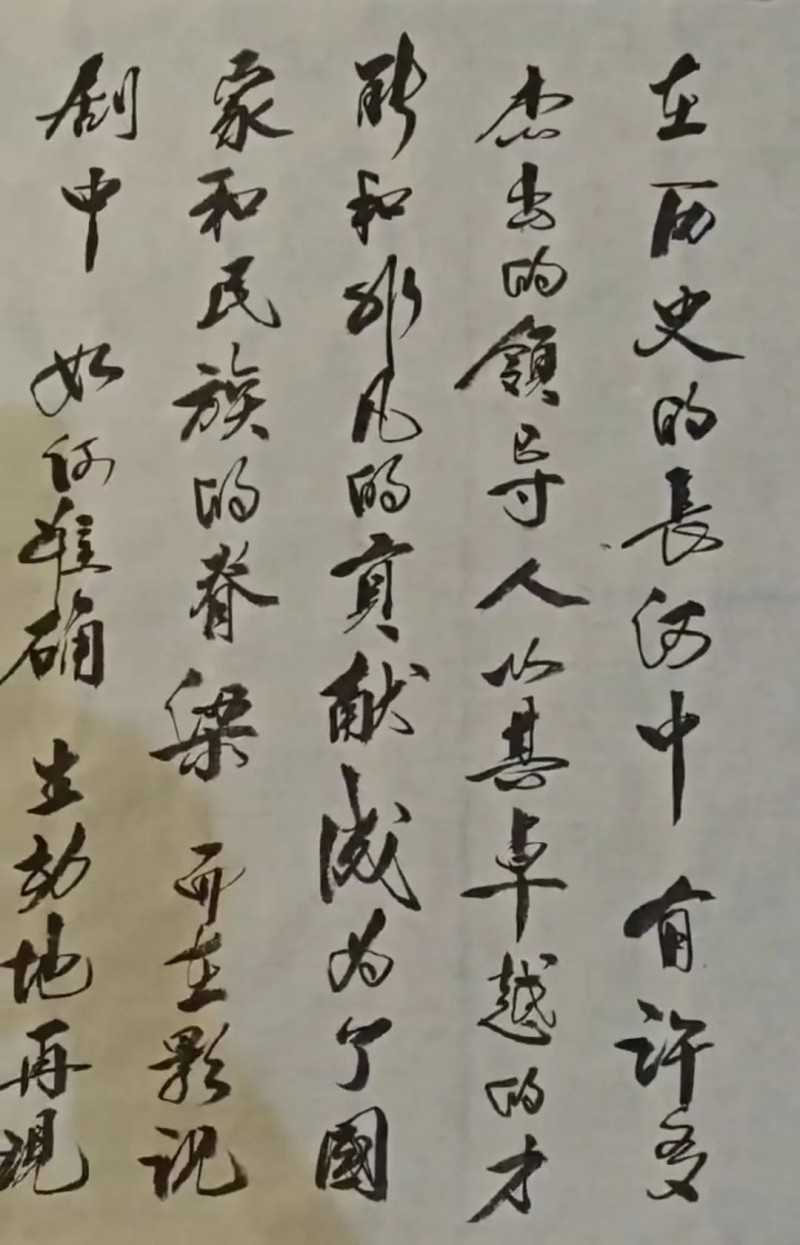 在历史的長河中 有许多
杰出的領导人以其卓越的才
能和非凡的貢献成为了國
家和民族的脊梁 而在影视
剧中 如何准确 生动地再現